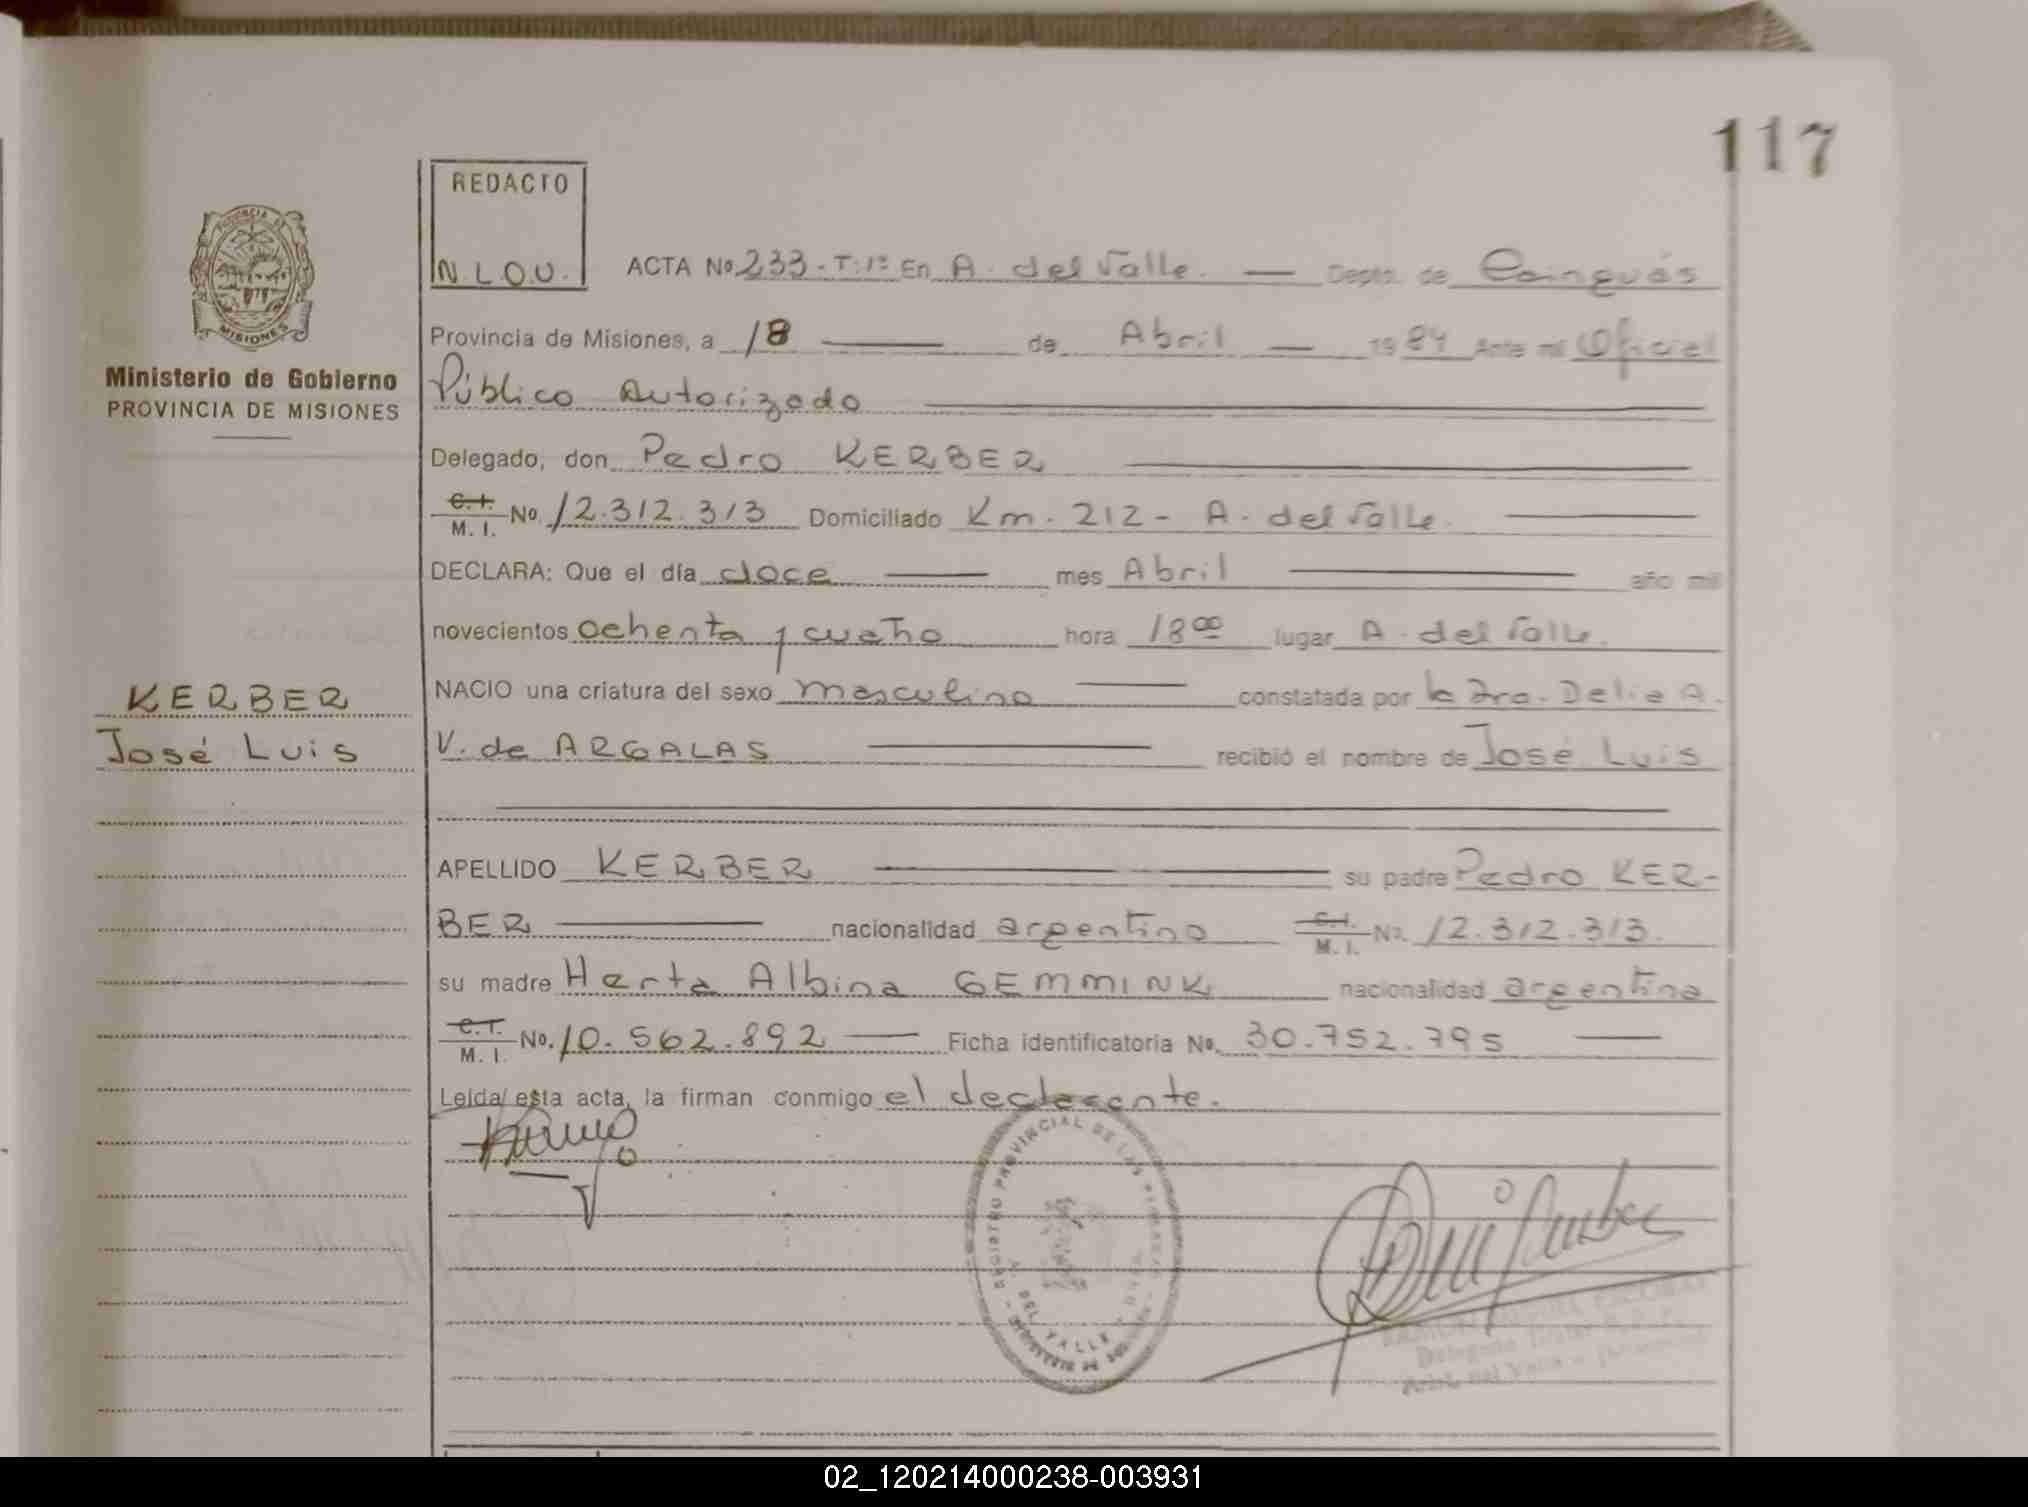 117
REDACTO
N.L.O.U.
PROVINCIA DE
MISIONES
Ministerio de Gobierno
PROVINCIA DE MISIONES
ACTA No. 233 - T: 1º En A. del Valle. — Depto. de Cainguás
Provincia de Misiones, a 18 — de Abril — 1984 Ante mi Oficial
Público Autorizado
Delegado, don Pedro KERBER
C.I. M. I. No. 12.312.313 Domiciliado Km. 212 - A. del Valle.
DECLARA: Que el día doce — mes Abril — año mil
novecientos ochenta y cuatro hora 18 00 lugar A. del Valle.
KERBER
José Luis
NACIO una criatura del sexo masculino — constatada por la Dra. Delia A.
V. de ARGALAS — recibió el nombre de José Luis
APELLIDO KERBER — su padre Pedro KER-
BER — nacionalidad argentino C.I. M. I. No. 12.312.313.
su madre Herta Albina GEMMINK nacionalidad argentina
C.I. M. I. No. 10.562.892 — Ficha identificatoria No. 30.752.795 —
Leída esta acta, la firman conmigo el declarante.
REGISTRO PROVINCIAL DE LAS PERSONAS
A. DEL VALLE
02_120214000238-003931